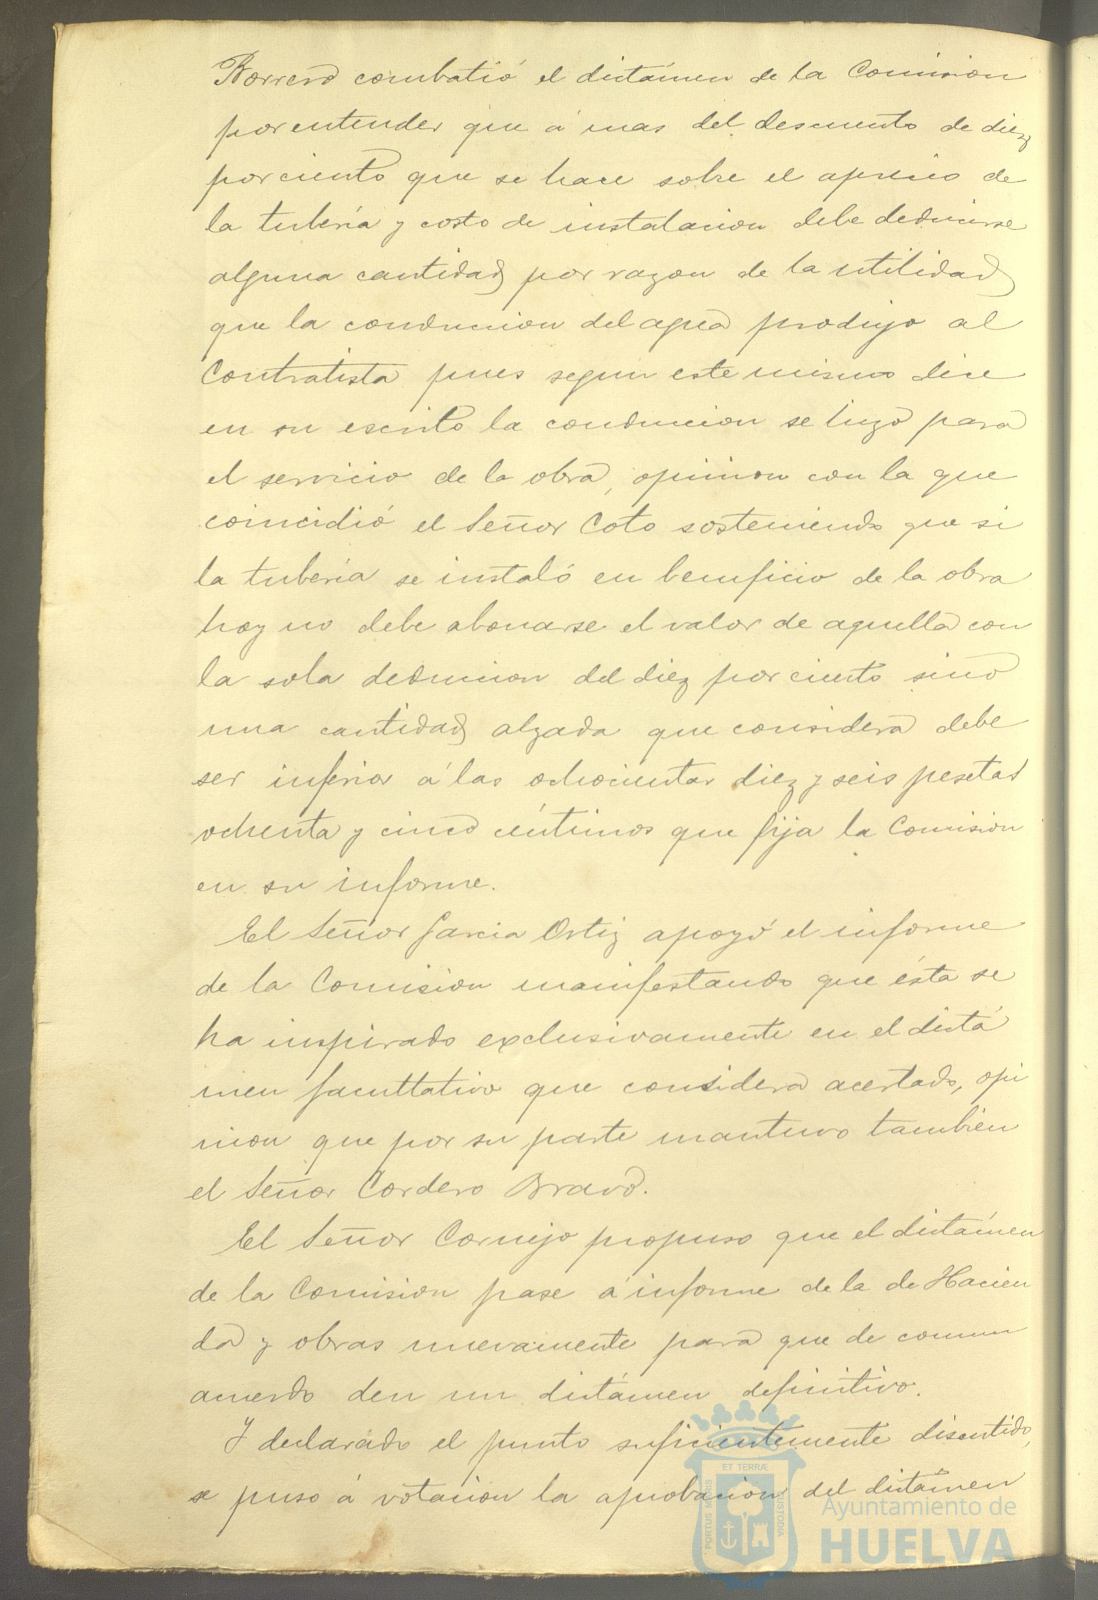 Borrero combatió el dictámen de la Comision
por entender que á mas del descuento de diez
por ciento que se hace sobre el aprecio de
la tubería y costo de instalacion debe deducirse
alguna cantidad por razon de la utilidad
que la conduccion del agua produjo al
Contratista pues segun este mismo dice
en su escrito la conduccion se hizo para
el servicio de la obra, opinion con la que
coincidió el Señor Coto sosteniendo que si
la tubería se instaló en beneficio de la obra
hoy no debe abonarse el valor de aquella con
la sola deduccion del diez por ciento sino
una cantidad alzada que considera debe
ser inferior á las ochocientas diez y seis pesetas
ochenta y cinco céntimos que fija la Comision
en su informe.
El Señor Garcia Ortiz apoyó el informe
de la Comision manifestando que ésta se
ha inspirado exclusivamente en el dictá
men facultativo que considera acertado, opi
nion que por su parte mantuvo tambien
el Señor Cordero Bravo.
El Señor Cornejo propuso que el dictámen
de la Comision pase á informe de la de Hacien
da y obras nuevamente para que de comun
acuerdo den un dictámen definitivo.
Y declarado el punto suficientemente discutido,
se puso á votacion la aprobacion del dictámen
PORTUS MARIS
ET TERRÆ
CUSTODIA
Ayuntamiento de
HUELVA